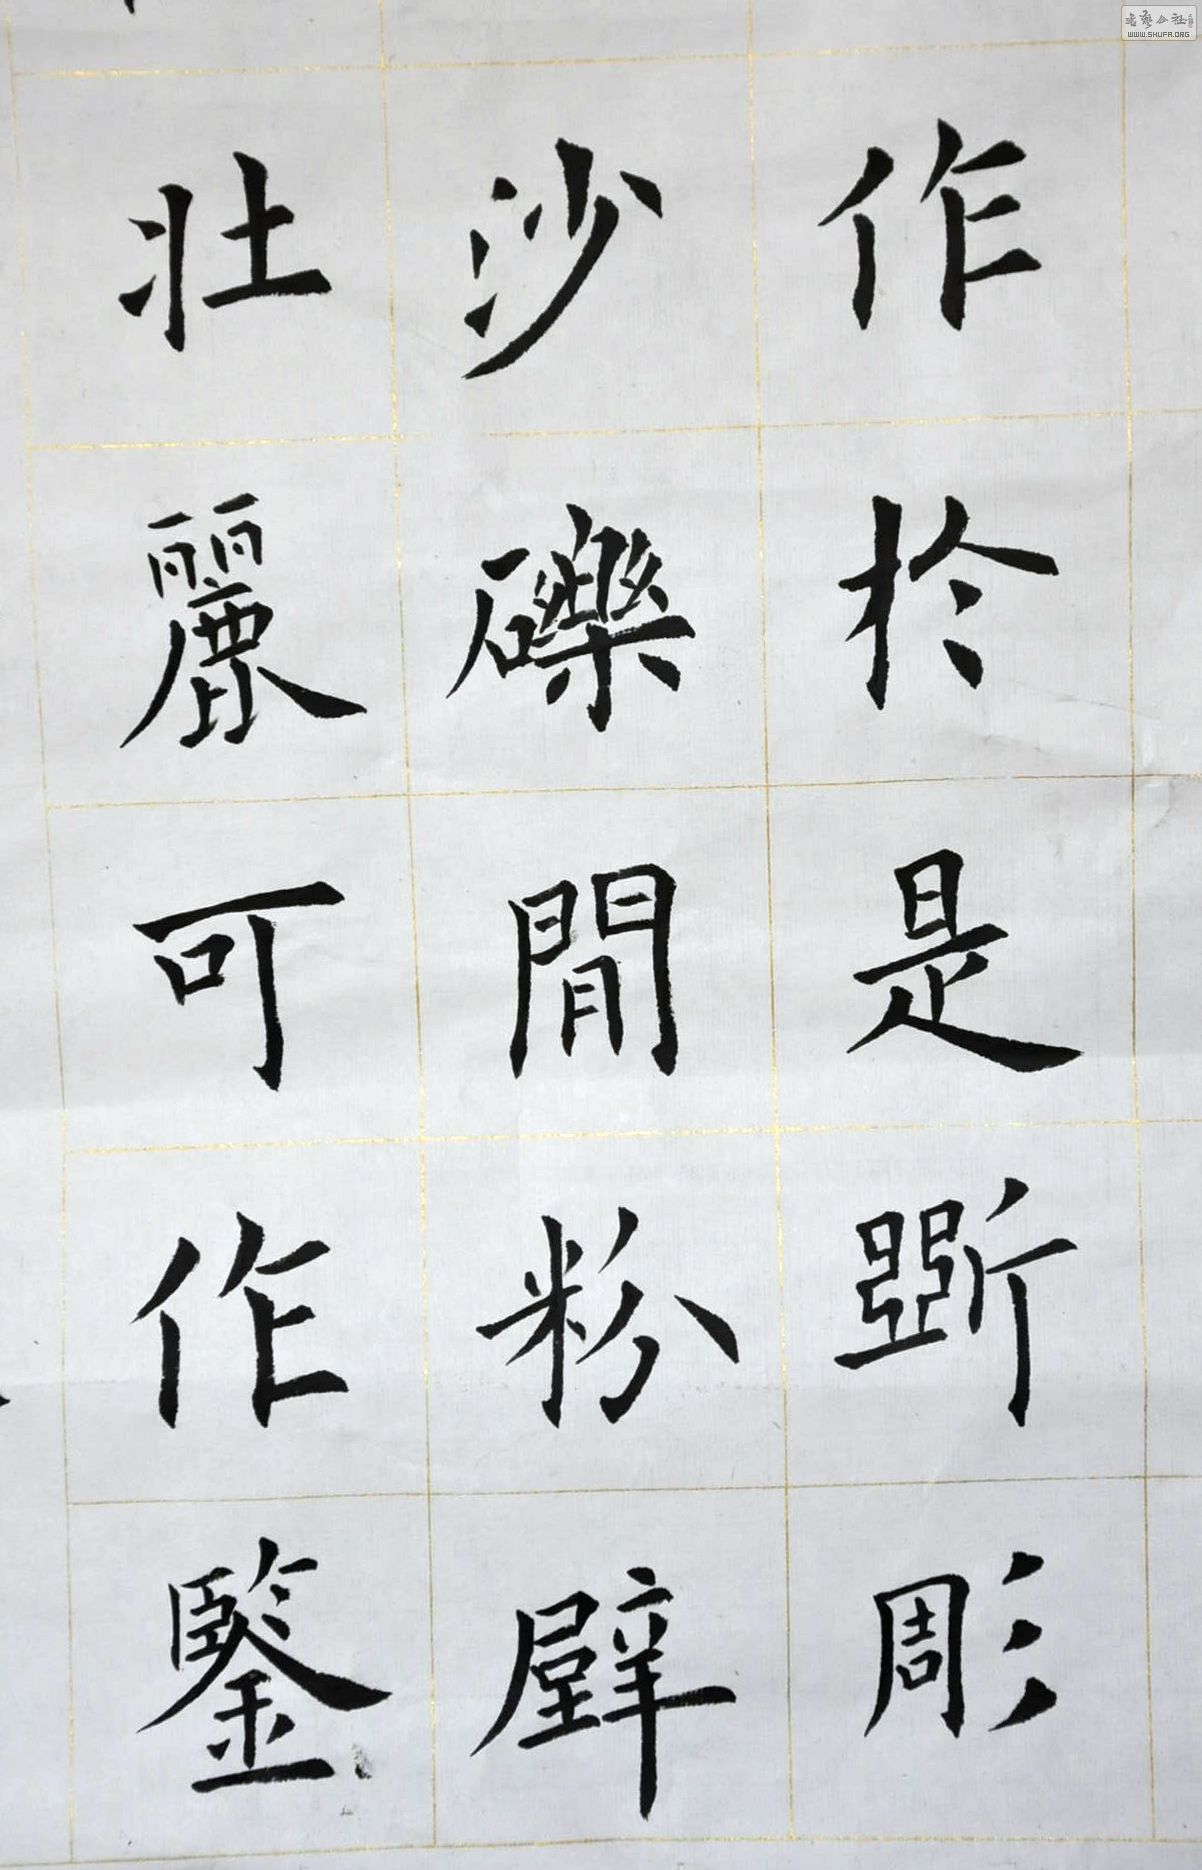 作於是斵彫
沙礫閒粉壁
壯麗可作鑒
书艺公社
WWW.SHUFA.ORG